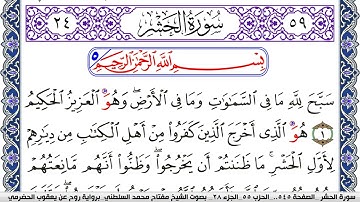 ٥٩ سُورَةُ الحَشْرِ ٢٤
بِسْمِ اللَّهِ الرَّحْمَٰنِ الرَّحِيمِ
سَبَّحَ لِلَّهِ مَا فِي السَّمَٰوَٰتِ وَمَا فِي الْأَرْضِ ۖ وَهُوَ الْعَزِيزُ الْحَكِيمُ
١ هُوَ الَّذِي أَخْرَجَ الَّذِينَ كَفَرُوا مِنْ أَهْلِ الْكِتَٰبِ مِن دِيَٰرِهِمْ
لِأَوَّلِ الْحَشْرِ ۚ مَا ظَنَنتُمْ أَن يَخْرُجُوا ۖ وَظَنُّوا أَنَّهُم مَّانِعَتُهُمْ
سورة الحشر . الصفحة ٥٤٥ . الحزب ٥٥ . الجزء ٢٨ . بصوت الشيخ مفتاح محمد السلطني . برواية روح عن يعقوب الحضرمي